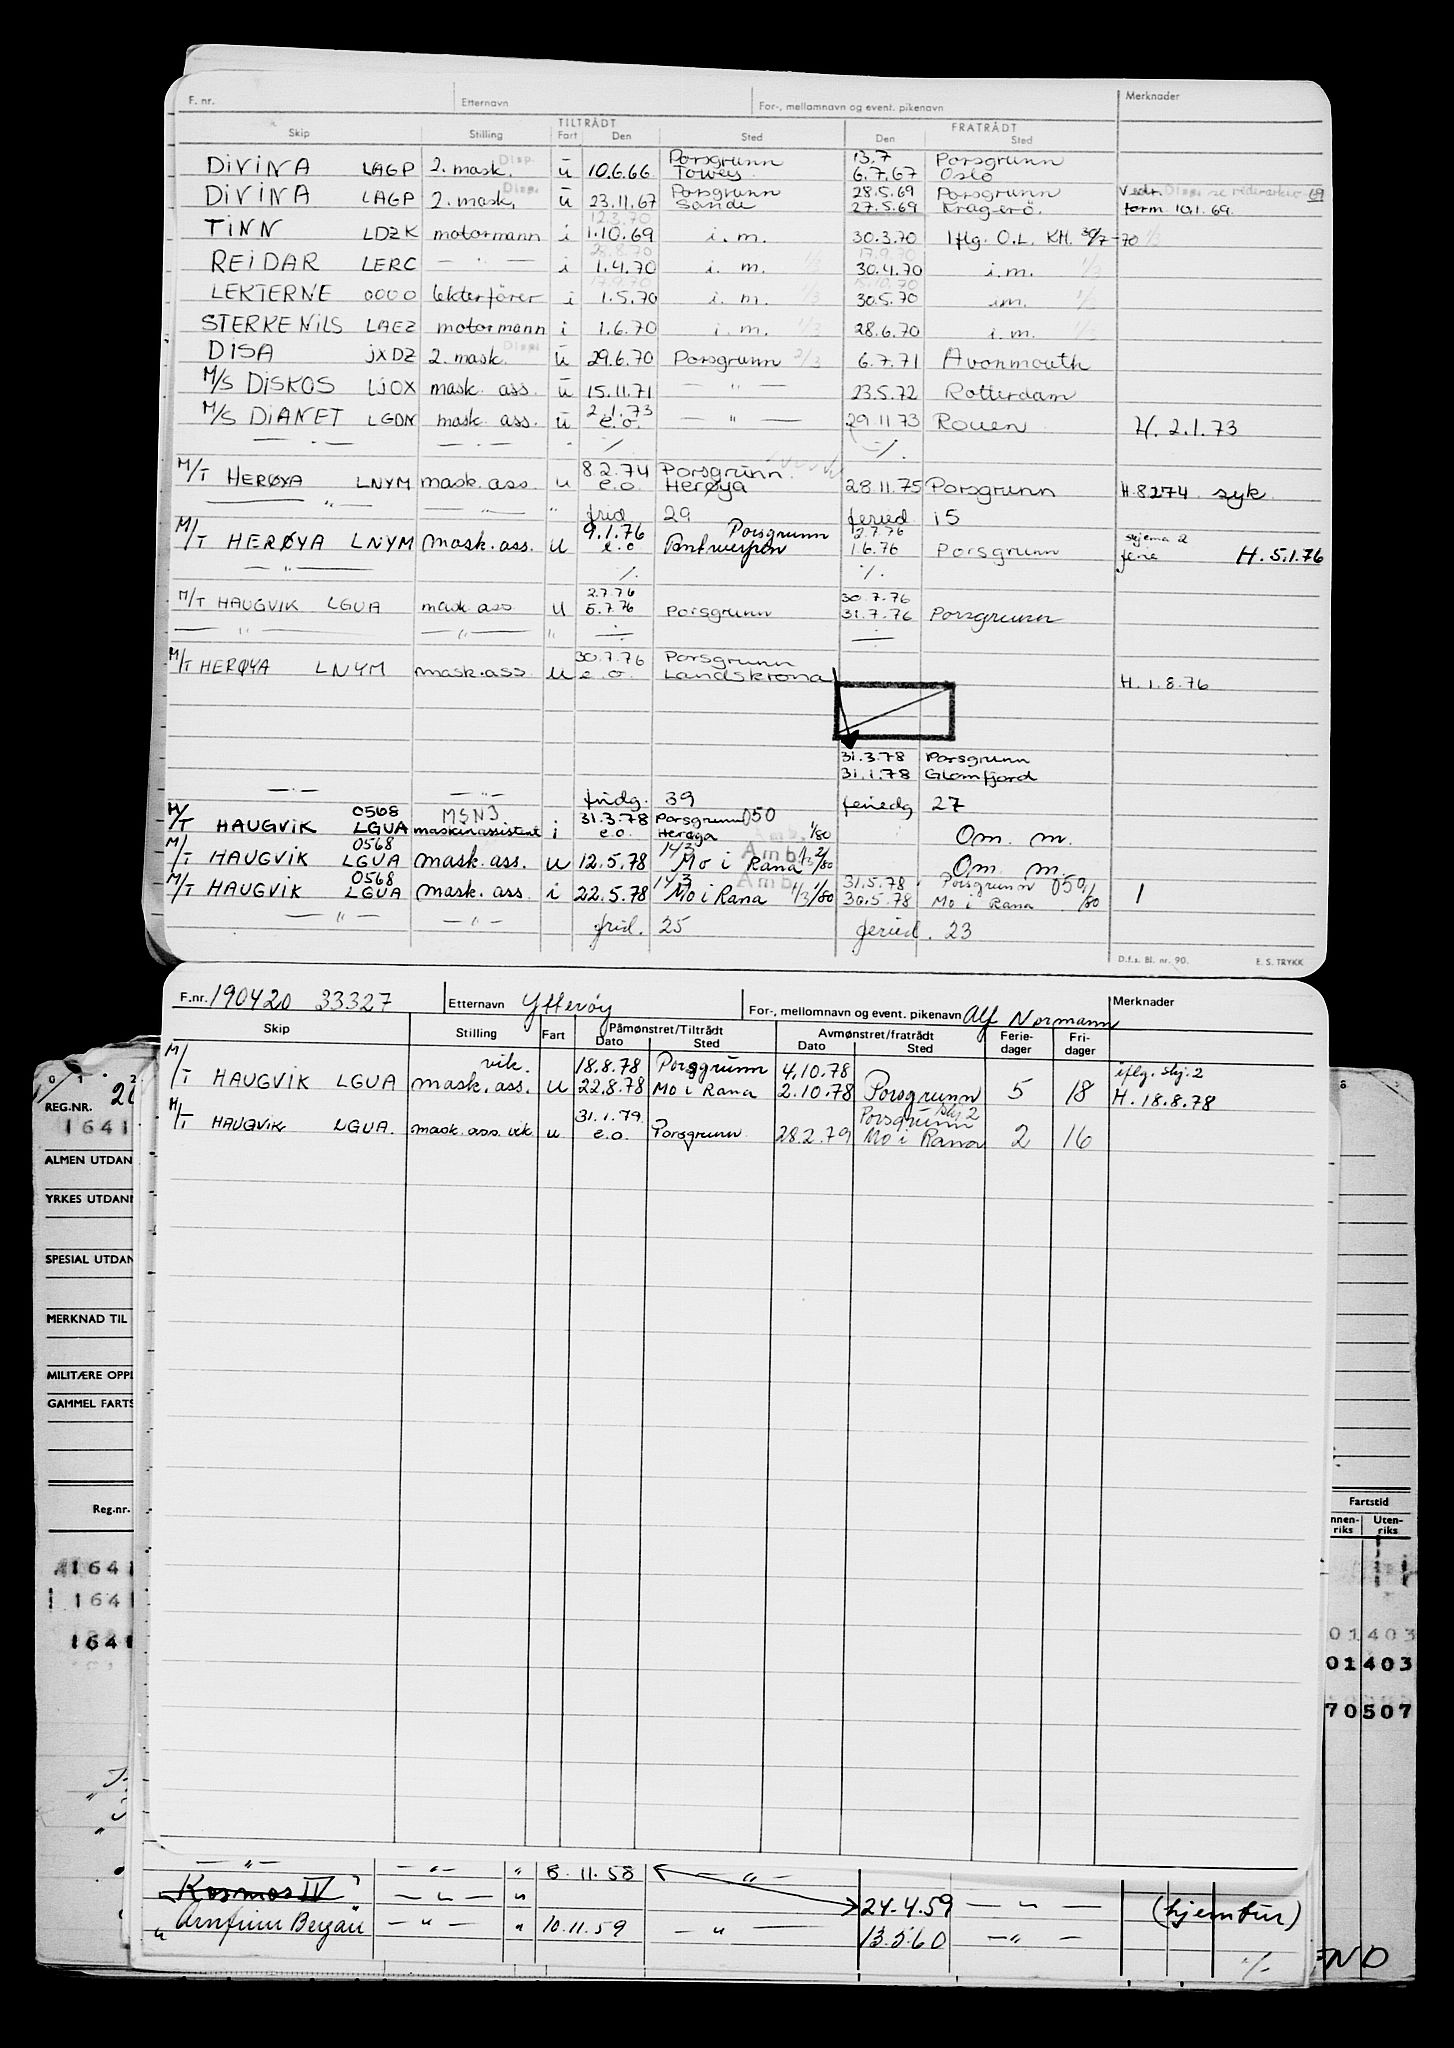 F. nr. Etternavn For-, mellomnavn og event. pikenavn Merknader
TILTRÅDT FRATRÅDT
Skip Stilling Fart Den Sted Den Sted
Porsgrunn 13.7 Porsgrunn
DIVINA LAGP 2. mask. Disp. u 10.6.66 6.7.67 Oslo
Porsgrunn 28.5.69 Porsgrunn
DIVINA LAGP 2. mask. Disp. u 23.11.67 Sande 27.5.69 Kragerö. form. 10.1.69.
12.3.70
TINN LDZK motormann i 1.10.69 i.m. 30.3.70 Iflg. O.L. KM. 30/7-70
17.9.70
REIDAR LERC — " — i 1.4.70 i. m. 1/3 30.4.70 i.m. 1/3
LEKTERNE 0000 lekterförer i 1.5.70 i. m. 1/3 30.5.70 i.m. 1/3
STERKE NILS LAEZ motormann i 1.6.70 i.m. 1/3 28.6.70 i.m. 1/3
DISA JXDZ 2. mask. Disp. u 29.6.70 Porsgrunn 2/3 6.7.71 Avonmouth
M/S DISKOS LJOX mask. ass. u 15.11.71 — " — 23.5.72 Rotterdam
2.1.73
M/S DIANET LGDN mask. ass. u e.o. — " — 29.11.73 Rouen H. 2.1.73
— " — — " — ./. ./.
8.2.74 Porsgrunn
M/T HERØYA LNYM mask. ass. u e.o. Herøya 28.11.75 Porsgrunn H.8274 syk
— " — — " — " frid 29 feried 15
9.1.76 Porsgrunn 2.7.76 skjema 2
M/T HERØYA LNYM mask. ass. u e.o Antwerpen 1.6.76 Porsgrunn ferie H. 5.1.76
— " — ./. ./.
2.7.76 30.7.76
M/T HAUGVIK LGUA mask ass. u 5.7.76 Porsgrunn 31.7.76 Porsgrunn
— " — — " — "
30.7.76 Porsgrunn
M/T HERØYA LNYM mask.ass. u e.o. Landskrona H. 1.8.76
31.3.78 Porsgrunn
31.1.78 Glomfjord
— " — — " — fridg. 39 feriedg 27
0568 MSN3 31.3.78 Porsgrunn 050
M/T HAUGVIK LGUA maskinassistent i e.o. Herøya Amb. 1/80 Om. m.
0568 14/3
M/T HAUGVIK LGUA mask. ass. u 12.5.78 Mo i Rana Amb. 1/3 2/80 Om. m.
0568 14/3 Amb. 31.5.78 Porsgrunn 050
M/T HAUGVIK LGUA mask. ass. i 22.5.78 Mo i Rana 1/3 1/80 30.5.78 Mo i Rana 1/80 1
— " — — " — frid. 25 feried. 23
D.f.s. Bl. nr. 90. E. S. TRYKK
F.nr. 190420 33327 Etternavn Ytterøy For-, mellomnavn og event. pikenavn Alf Normann Merknader
Skip Stilling Fart Påmønstret/Tiltrådt Avmønstret/fratrådt Ferie- Fri-
Dato Sted Dato Sted dager dager
vik. 18.8.78 Porsgrunn 4.10.78 iflg. skj. 2
M/T HAUGVIK LGUA mask. ass. u 22.8.78 Mo i Rana 2.10.78 Porsgrunn 5 18 H. 18.8.78
31.1.79 Porsgrunn skj 2
M/T HAUGVIK LGUA. mask. ass. vik u e.o. Porsgrunn 28.2.79 Mo i Rana 2 16
0 1 2
REG.NR. 2
1641
ALMEN UTDAN
YRKES UTDAN
SPESIAL UTDAN
MERKNAD TIL
MILITÆRE OPP
GAMMEL FARTS
Reg.nr. Fartstid
nnen- Uten-
riks riks
1641
1641
1641
01403
01403
70507
— " — — " — " 8.11.58 — " —
Kosmos IV — " — " 24.4.59 — " — (hjemtur)
" Arnfinn Bergan — " — " 10.11.59 — " — 13.5.60 — " —
./.
END